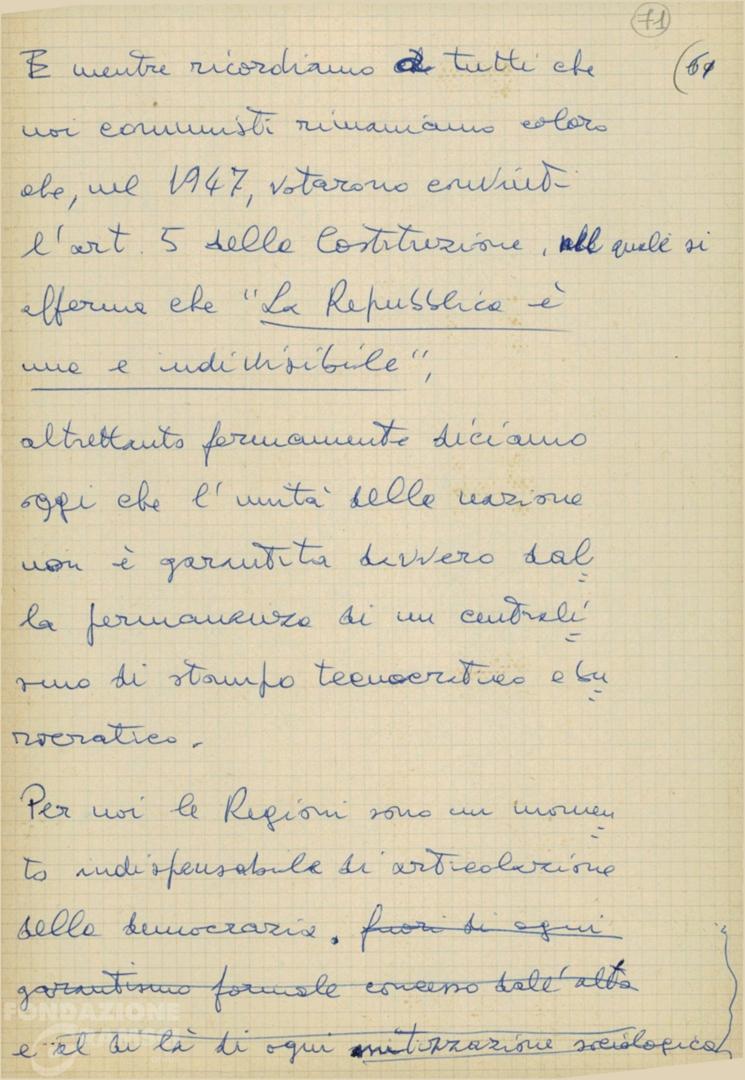 71
E mentre ricordiamo a tutti che (61
noi comunisti rimaniamo coloro
che, nel 1947, votarono convinti
l'art. 5 della Costituzione, nel quale si
afferma che "La Repubblica è
una e indivisibile",
altrettanto fermamente diciamo
oggi che l'unità della nazione
non è garantita davvero dal
la permanenza di un centrali
smo di stampo tecnocratico e bu
rocratico.
Per noi le Regioni sono un momen
to indispensabile di articolazione
della democrazia. fuori di ogni
garantismo formale concesso dall'alto
e al di là di ogni mitizzazione sociologica
FONDAZIONE